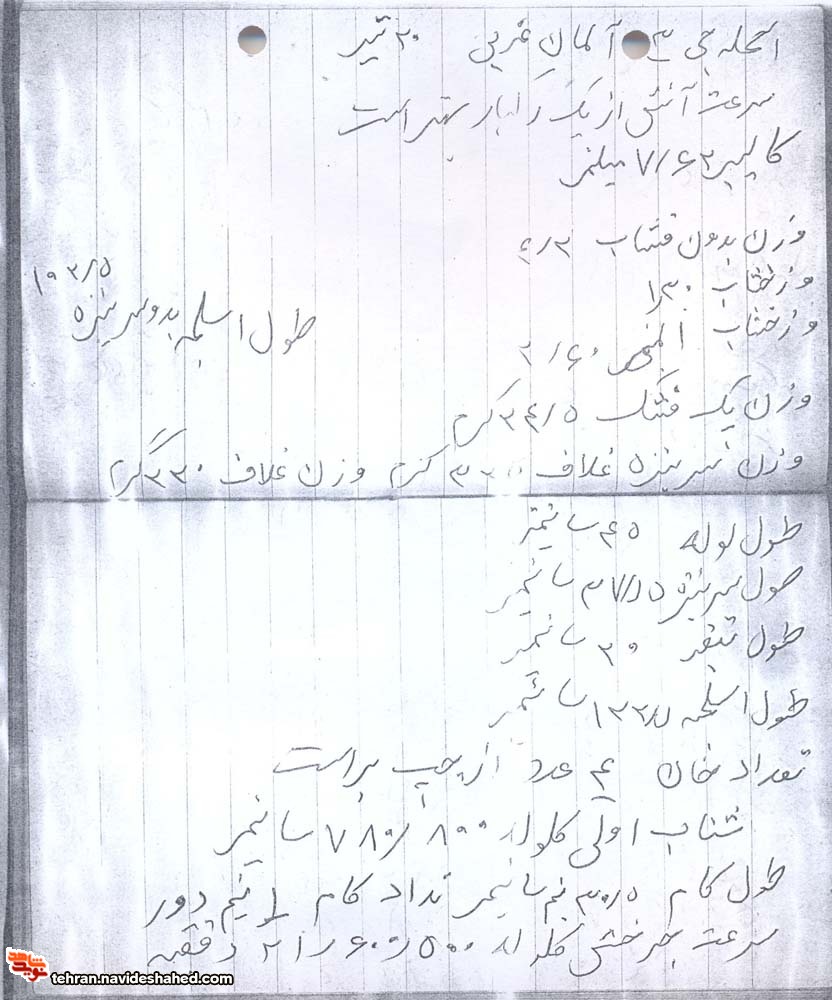 اسحله جی ۳ آلمان غربی ۲۰ تیر
سرعت آتش از یک رگبار بهتر است
کالیبر ۷/۶۲ میلیمتر
وزن بدون فشاب ۴/۳
وزخشاب
وزخشاب
طول اسلحه بدو سرنیزه ۱۰۲/۵
وزن یک فشنگ ۲۴/۵ گرم
وزن سرنیزه غلاف گرم وزن غلاف ۲۳۰ گرم
طول لوله ۴۵ سانیمتر
طول سرنیزه ۳۷/۵ سانیمتر
طول ۳۰ سانیمتر
طول اسلحه ۱۳۲/۵ سانیمتر
تعداد خان ۴ عدد از چپ براست
شتاب اولی گلوله ۸۰۰ / ۷۸۰ سانیمتر
طول گام ۳۰/۵ سانیمتر تداد گام نیم دور
سرعت چرخش گلوله دقیقه
شاهد
نوید
tehran.navideshahed.com